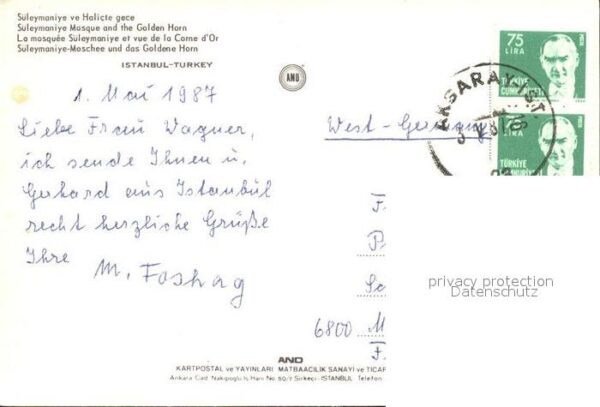 Süleymaniye ve Halicte gece
Süleymaniye Mosque and the Golden Horn
La mosquée Süleymaniye et vue de la Corne d'Or
Süleymaniye-Moschee und das Goldene Horn
ISTANBUL-TURKEY
AND
75
LIRA
TÜRKİYE
CUMHURİYETİ
AKSARAY-IST
TÜRKİYE
1. Mai 1987
Liebe Frau Wagner,
ich sende Ihnen u.
Gerhard aus Istanbul
recht herzliche Grüße
Ihre
M. Foshag
West-Germany
F
P
Se
6800 M
F.
privacy protection
Datenschutz
AND
KARTPOSTAL ve YAYINLARI MATBAACILIK SANAYİ ve TİCAR
Ankara Cad. Nakipoğlu İş Hanı No. 50/7 Sirkeci-İSTANBUL Telefon